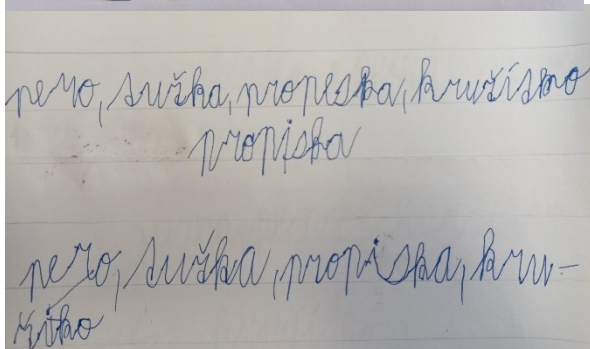 pero, sužka, propeska, kružísko
propiska
pero, sužka, propiska, kru-
žitko